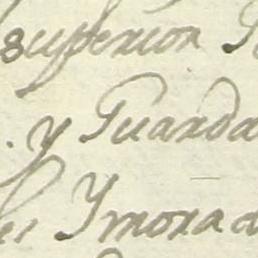 superior
y Guarda
Ymorad